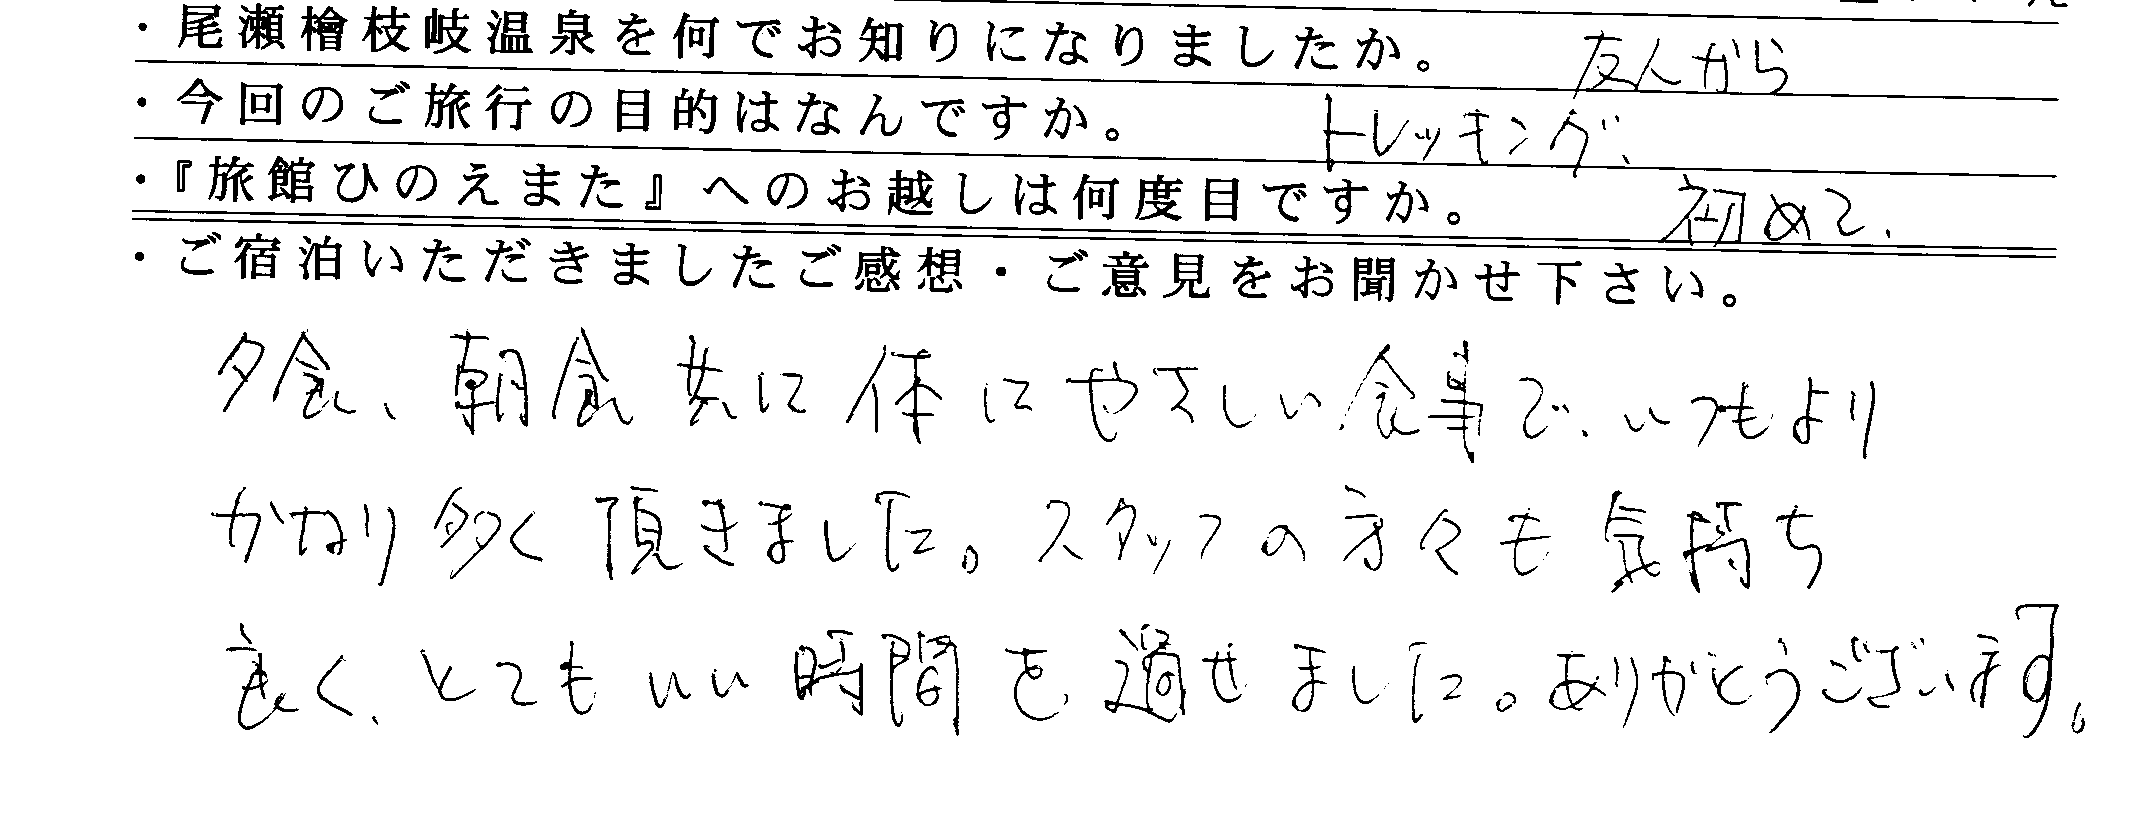 ・尾瀬檜枝岐温泉を何でお知りになりましたか。 友人から
・今回のご旅行の目的はなんですか。 トレッキング、
・『旅館ひのえまた』へのお越しは何度目ですか。 初めて、
・ご宿泊いただきましたご感想・ご意見をお聞かせ下さい。
夕食、朝食共に体にやさしい食事で、いつもより
かなり多く頂きました。スタッフの方々も気持ち
良く、とてもいい時間を過せました。ありがとうございます。